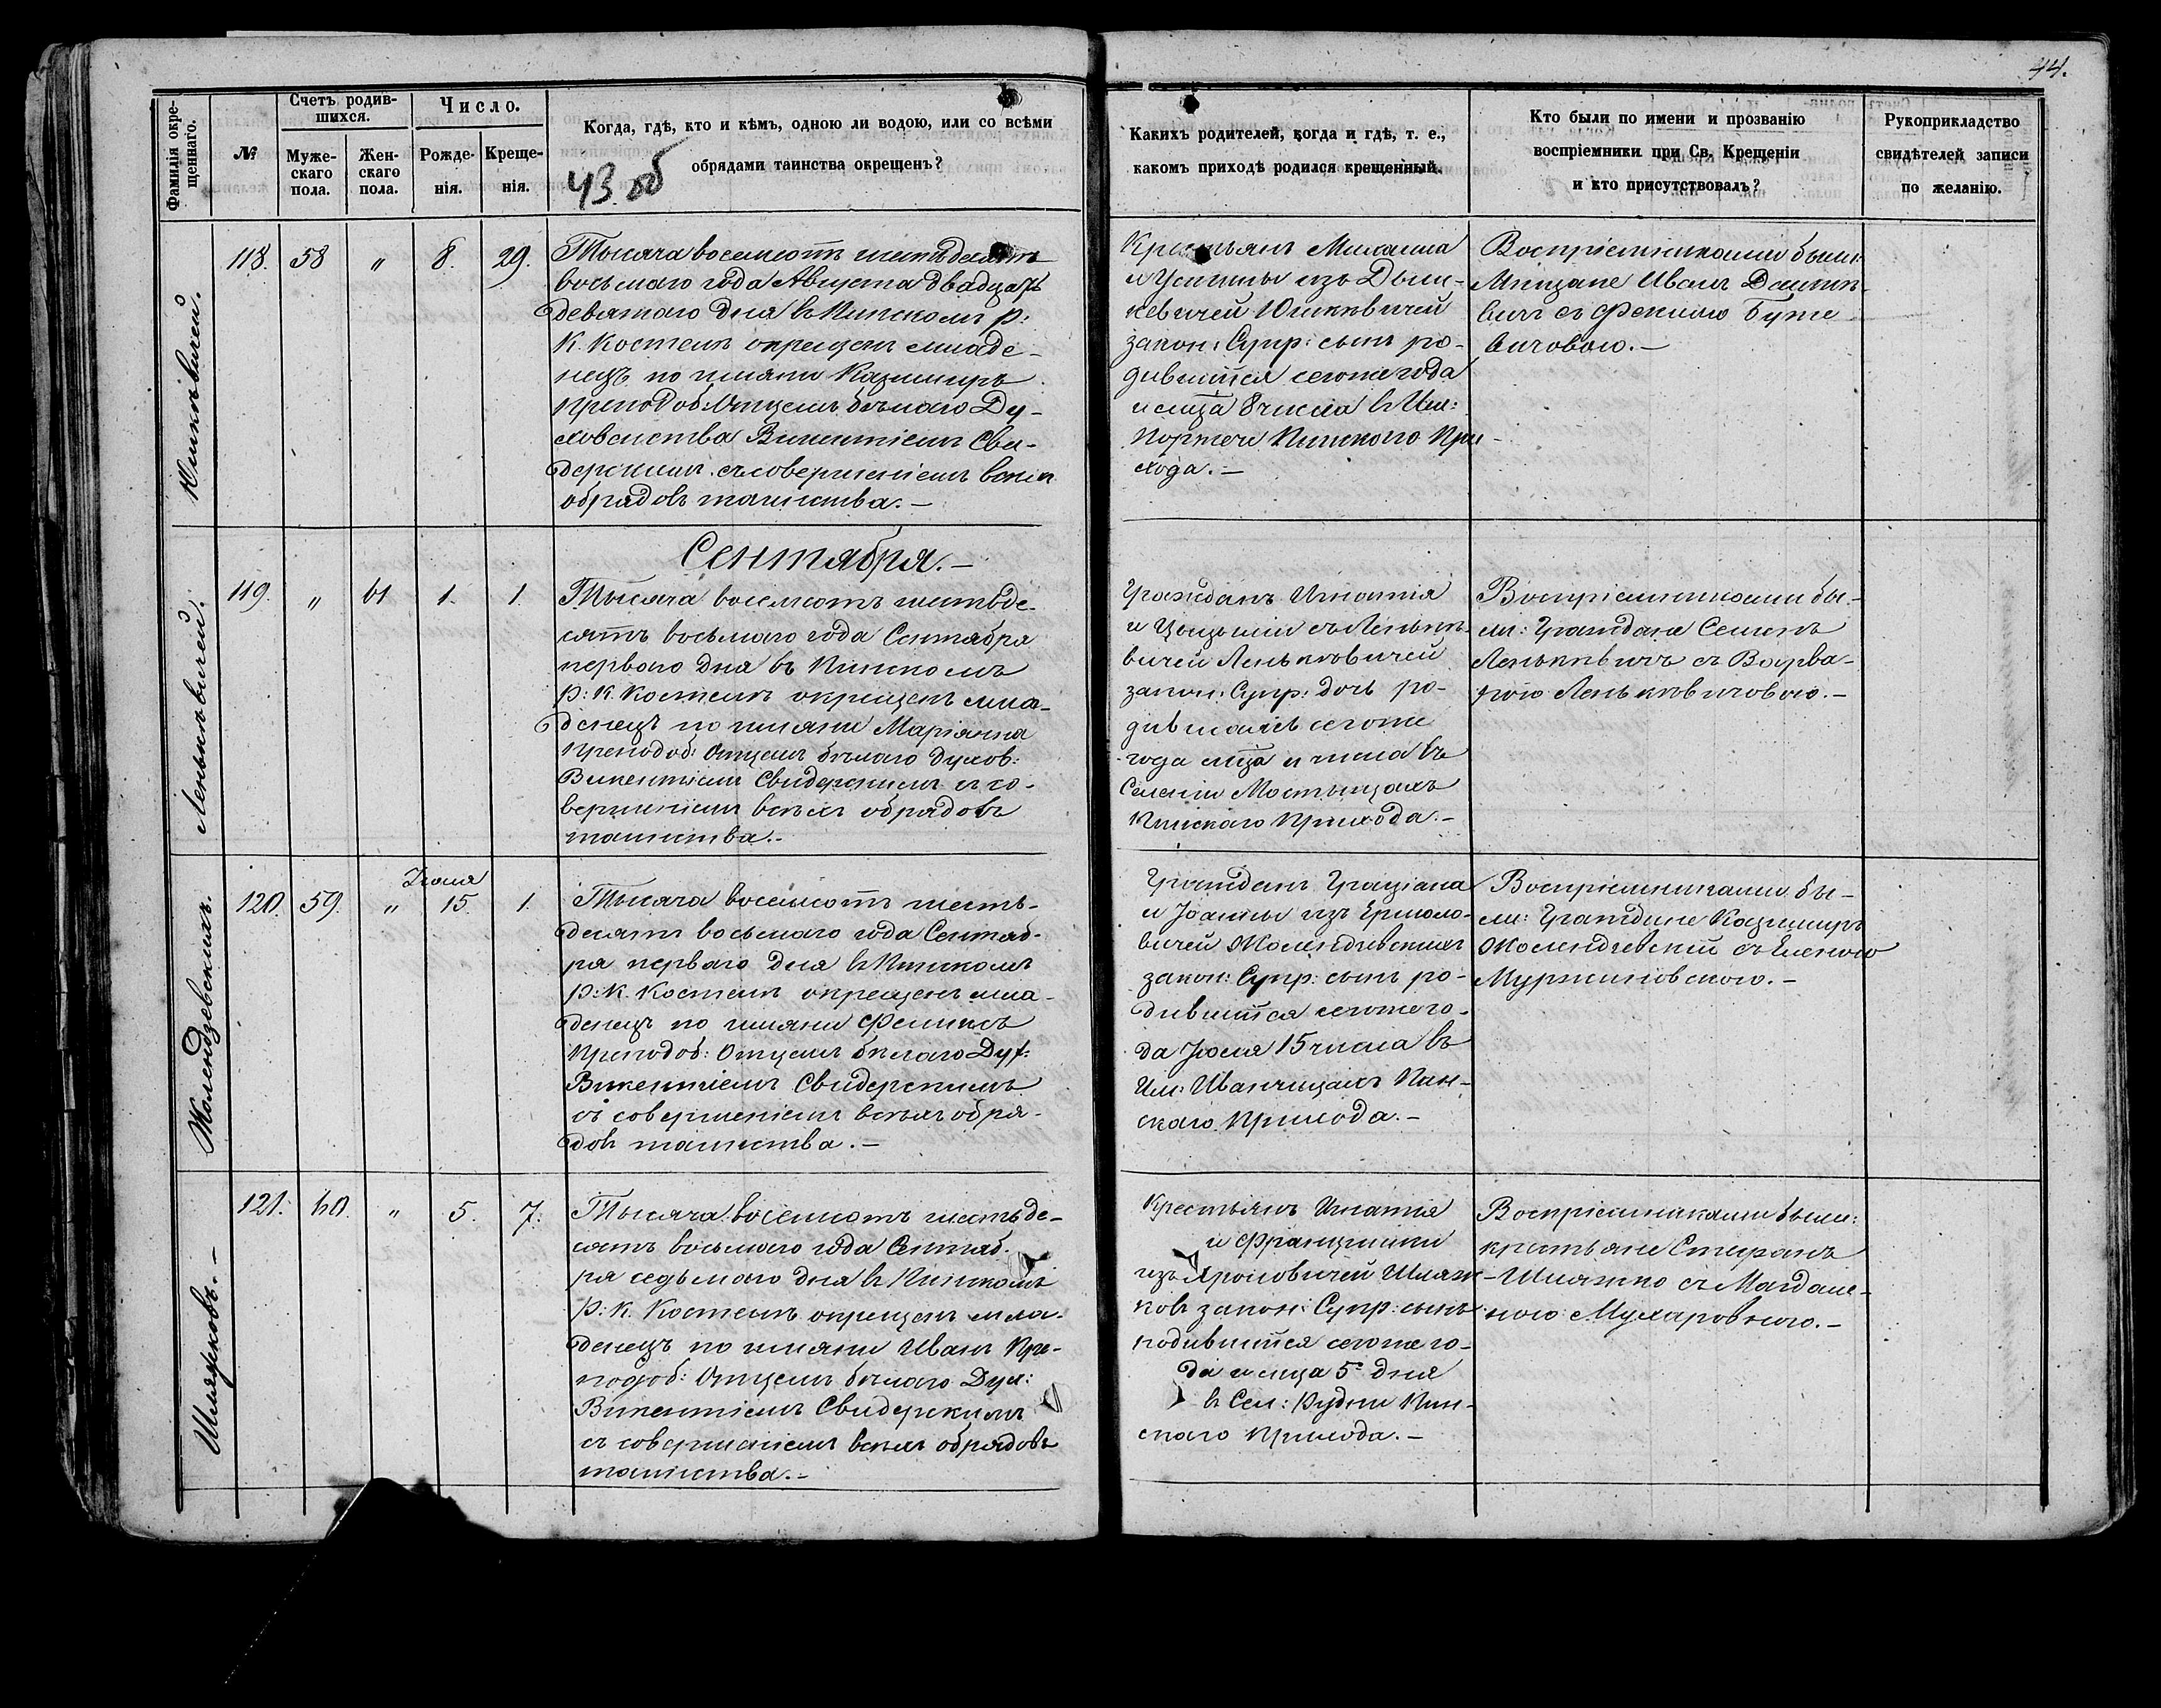 44.
Фамилія окре-
щеннаго.
№
Счетъ родив-
шихся.
Муже-
скаго
пола.
Жен-
скаго
пола.
Число.
Рожде-
нія.
Креще-
нія.
Когда, гдѣ, кто и кѣмъ, одною ли водою, или со всѣми
обрядами таинства окрещенъ?
43 об
Какихъ родителей, когда и гдѣ, т. е.,
какомъ приходѣ родился крещенный.
Кто были по имени и прозванію
воспріемники при Св. Крещеніи
и кто присутствовалъ?
Рукоприкладство
свидѣтелей записи
по желанію.
Юшкѣвичей.
118.
58
"
8.
29.
Тысяча восемсотъ шестьдесятъ
восьмаго года Августа двадцать
девятаго дня въ Пинскомъ Р:
К. Костелѣ окрещенъ младе-
нецъ по имяни Казимиръ
Преподоб: Отцемъ бѣлаго Ду-
ховенства Викентіемъ Сви-
дерскимъ съ совершеніемъ всѣхъ
обрядовъ таинства.—
Крестьянъ Михаила
и Устины изъ Дым-
кевичей Юшкѣвичей
закон: Супр: сынъ ро-
дившійся сегоже года
и мца 8 числа въ Им:
Пинскаго При-
хода.—
Воспріемниками были:
Мѣщане Иванъ
вичъ съ Феклою Буте
вичовою.—
Сентября.—
Леньковичей.
119.
"
61
1.
1.
Тысяча восемсотъ шестьде-
сятъ восьмаго года Сентября
перваго дня въ Пинскомъ
Р: К. Костелѣ окрещенъ мла-
денецъ по имяни Маріянна
Преподоб: Отцемъ бѣлаго Духов:
Викентіемъ Свидерскимъ съ со-
вершеніемъ всѣхъ обрядовъ
таинства.—
Гражданъ Игнатія
и Цециліи съ Леньк-
вичей Леньковичей
закон: Супр: дочь ро-
дившаяся сегоже
года мца и числа въ
Селеніи Мостыцахъ
Пинскаго Прихода.—
Воспріемниками бы-
ли: Граждане Семенъ
Леньквичъ съ Варва-
рою Леньквичовою.—
Жолендзевскихъ.
120.
59.
"
Іюля
15.
1.
Тысяча восемсотъ шесть-
десятъ восьмаго года Сентяб-
ря перваго дня въ Пинскомъ
Р: К. Костелѣ окрещенъ мла-
денецъ по имяни Феликсъ
Преподоб: Отцемъ бѣлаго Дух:
Викентіемъ Свидерскимъ
съ совершеніемъ всѣхъ обря-
довъ таинства.—
Гражданъ Граціана
и Іоанны изъ Ермоло-
вичей Жолендзевскихъ
закон: Супр: сынъ ро-
дившійся сегоже го-
да Іюля 15 числа въ
Им: Иванчицахъ Пин-
скаго Прихода.—
Воспріемниками бы-
ли: Граждане Казимиръ
Жолендзевскій съ Еленою
Муржиновскою.—
Шляжковъ.—
121.
60.
"
5.
7.
Тысяча восемсотъ шестьде-
сятъ восьмаго года Сентяб-
ря седьмаго дня въ Пинскомъ
Р: К. Костелѣ окрещенъ мла-
денецъ по имяни Иванъ Пре-
подоб: Отцемъ бѣлаго Дух:
Викентіемъ Свидерскимъ
съ совершеніемъ всѣхъ обрядовъ
таинства.—
Крестьянъ Игнатія
и Францишки
изъ Шляж-
ковъ закон: Супр: сынъ
родившійся сегоже го-
да и мца 5 дня
въ Сел: Рудни Пин-
скаго Прихода.—
Воспріемниками были:
крестьяне Стефанъ
Шляжко съ Магдале-
ною Мухаровною.—